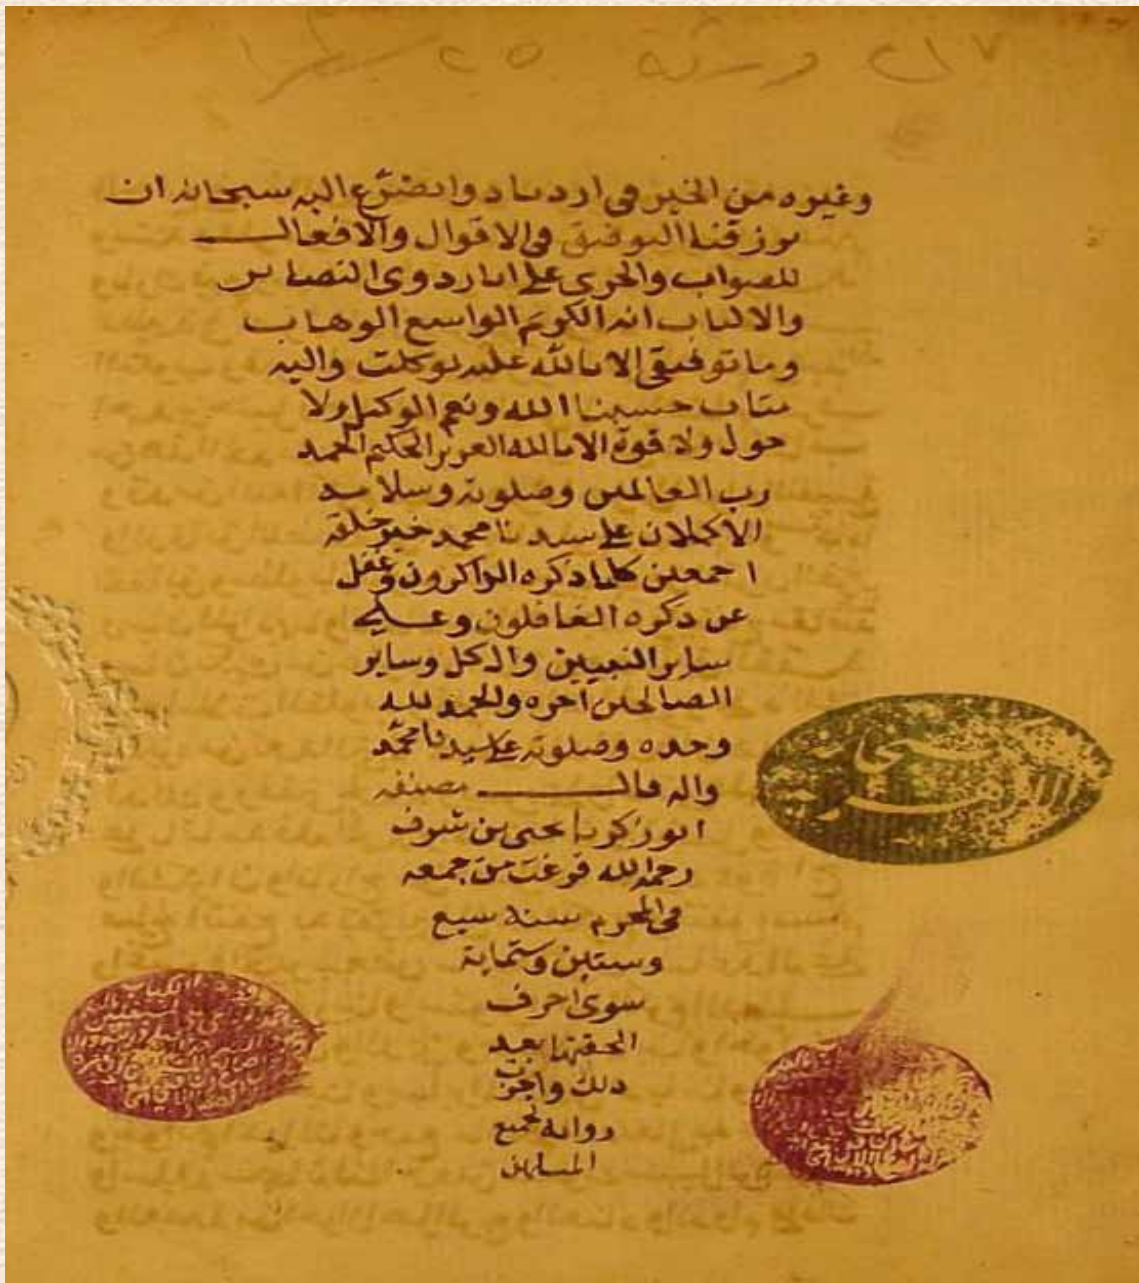 ٢١٧ ورقة ٢٥ سطرا
وغيره من الخير في ازدياد واتضرع اليه سبحانه ان
يرزقنا التوفيق في الاقوال والافعال
للصواب والجرى على اثار ذوى البصاير
والالباب انه الكريم الواسع الوهاب
وما توفيقى الا بالله عليه توكلت واليه
متاب حسبنا الله ونعم الوكيل ولا
حول ولا قوة الا بالله العزيز الحكيم الحمد
رب العالمين وصلوته وسلامه
الاكملان على سيدنا محمد خير خلقه
اجمعين كلما ذكره الذاكرون وغفل
عن ذكره الغافلون وعلى
ساير النبيين وال كل وساير
الصالحين اخره والحمد لله
وحده وصلوته على سيدنا محمد
واله قال مصنفه
ابو زكريا يحيى بن شرف
رحمه الله فرغت من جمعه
في المحرم سنة سبع
وستين وستماية
سوى احرف
الحقتها بعد
ذلك واجزت
روايته لجميع
المسلمين